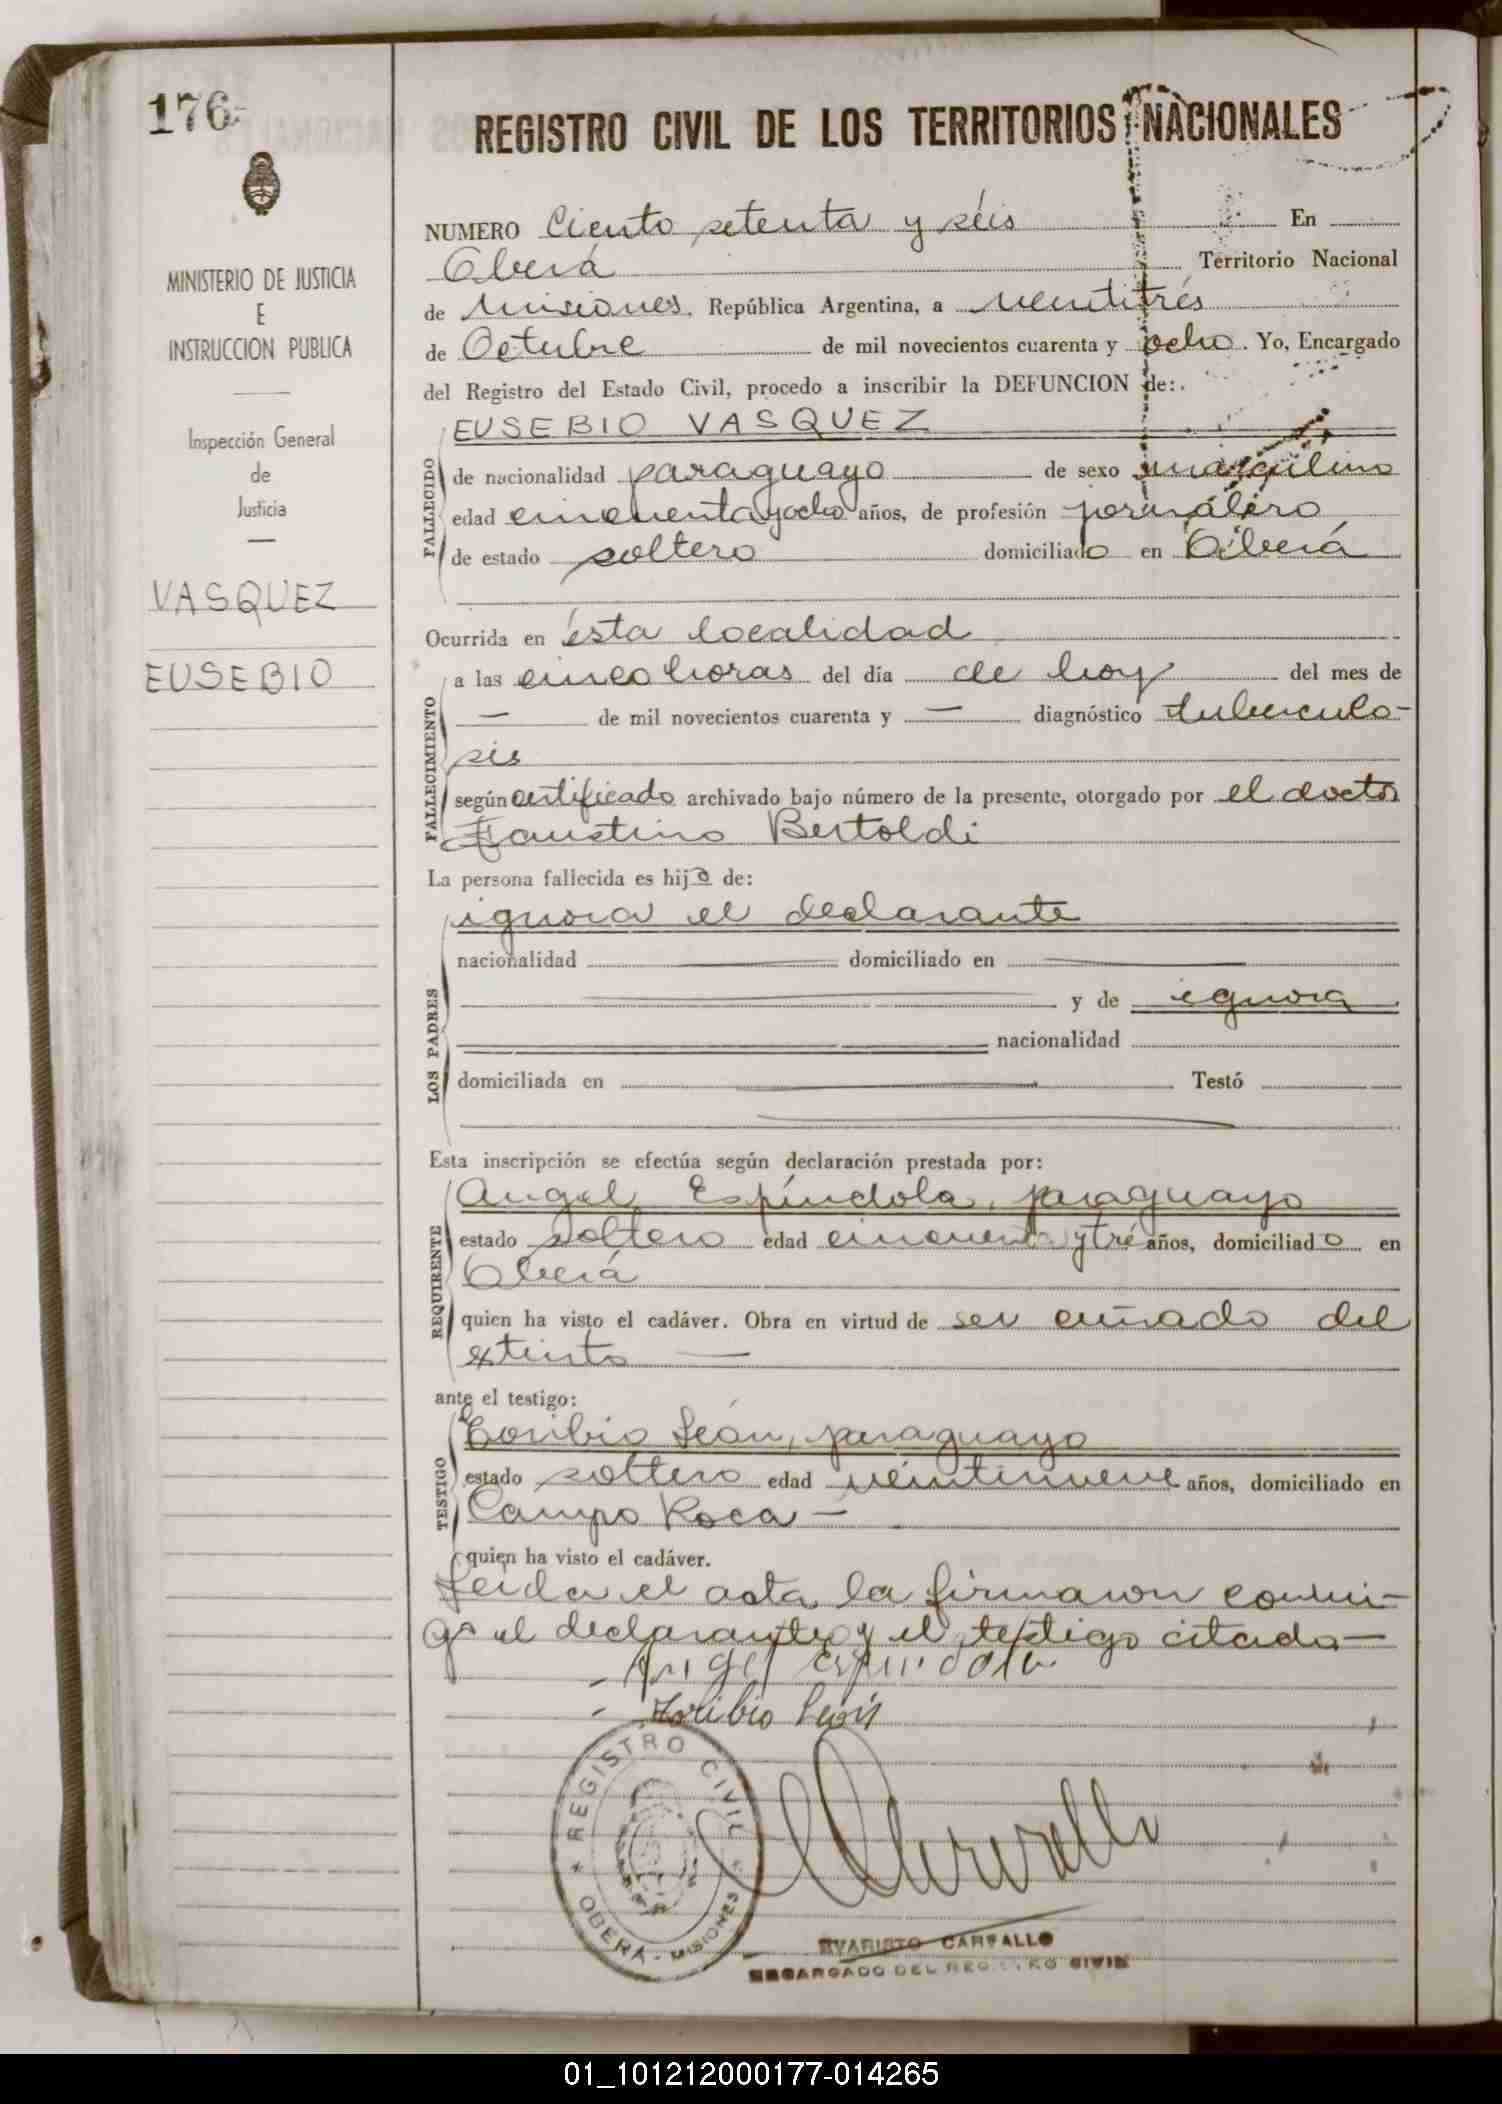 176
REGISTRO CIVIL DE LOS TERRITORIOS NACIONALES
MINISTERIO DE JUSTICIA
E
INSTRUCCION PUBLICA
Inspección General
de
Justicia
VASQUEZ
EUSEBIO
NUMERO Ciento setenta y séis En
Oberá Territorio Nacional
de Misiones, República Argentina, a veintitrés
de Octubre de mil novecientos cuarenta y ocho. Yo, Encargado
del Registro del Estado Civil, procedo a inscribir la DEFUNCION de:
EUSEBIO VASQUEZ
FALLECIDO
de nacionalidad paraguayo de sexo masculino
edad cincuenta y ocho años, de profesión jornalero
de estado soltero domiciliado en Oberá
Ocurrida en ésta localidad
FALLECIMIENTO
a las cinco horas del día de hoy del mes de
— de mil novecientos cuarenta y — diagnóstico tuberculo-
sis
según certificado archivado bajo número de la presente, otorgado por el doctor
Faustino Bertoldi
La persona fallecida es hijo de:
LOS PADRES
ignora el declarante
nacionalidad domiciliado en
y de ignora
nacionalidad
domiciliada en Testó
Esta inscripción se efectúa según declaración prestada por:
REQUIRENTE
Angel Espíndola, paraguayo
estado soltero edad cincuenta y tres años, domiciliado en
Oberá
quien ha visto el cadáver. Obra en virtud de ser cuñado del
extinto —
ante el testigo:
TESTIGO
Toribio León, paraguayo
estado soltero edad veintinueve años, domiciliado en
Campo Roca —
quien ha visto el cadáver.
Leída el acta, la firmaron conmi-
go el declarante y el testigo citado —
Angel Espindola
Toribio León
REGISTRO CIVIL
OBERÁ - MISIONES
EVARISTO CARVALLO
ENCARGADO DEL REGISTRO CIVIL
01_101212000177-014265